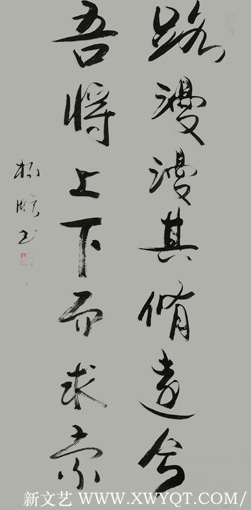 路漫漫其脩远兮
吾将上下而求索
新文艺/WWW.XWYQT.COM/